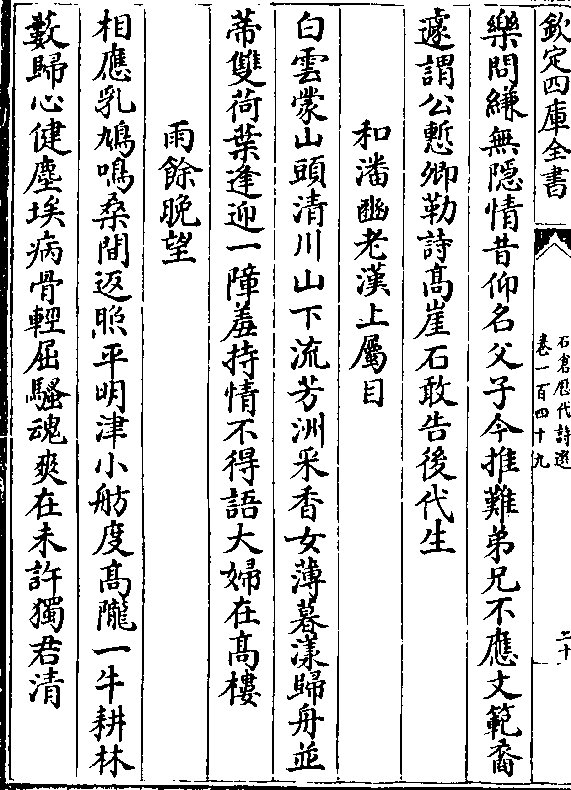 欽定四庫全書
石倉歷代詩選
卷一百四十九
二十
樂問縑無隠情昔仰名父子今推難弟兄不應文範裔
遽謂公慙卿勒詩髙崖石敢告後代生
和潘豳老漢上屬目
白雲蒙山頭清川山下流芳洲采香女薄暮漾歸舟並
蒂雙荷葉逢迎一障羞持情不得語大婦在髙樓
雨餘晩望
相應乳鳩鳴桑間返照平明津小舫度髙隴一牛耕林
藪歸心健塵埃病骨輕屈騷魂爽在未許獨君清